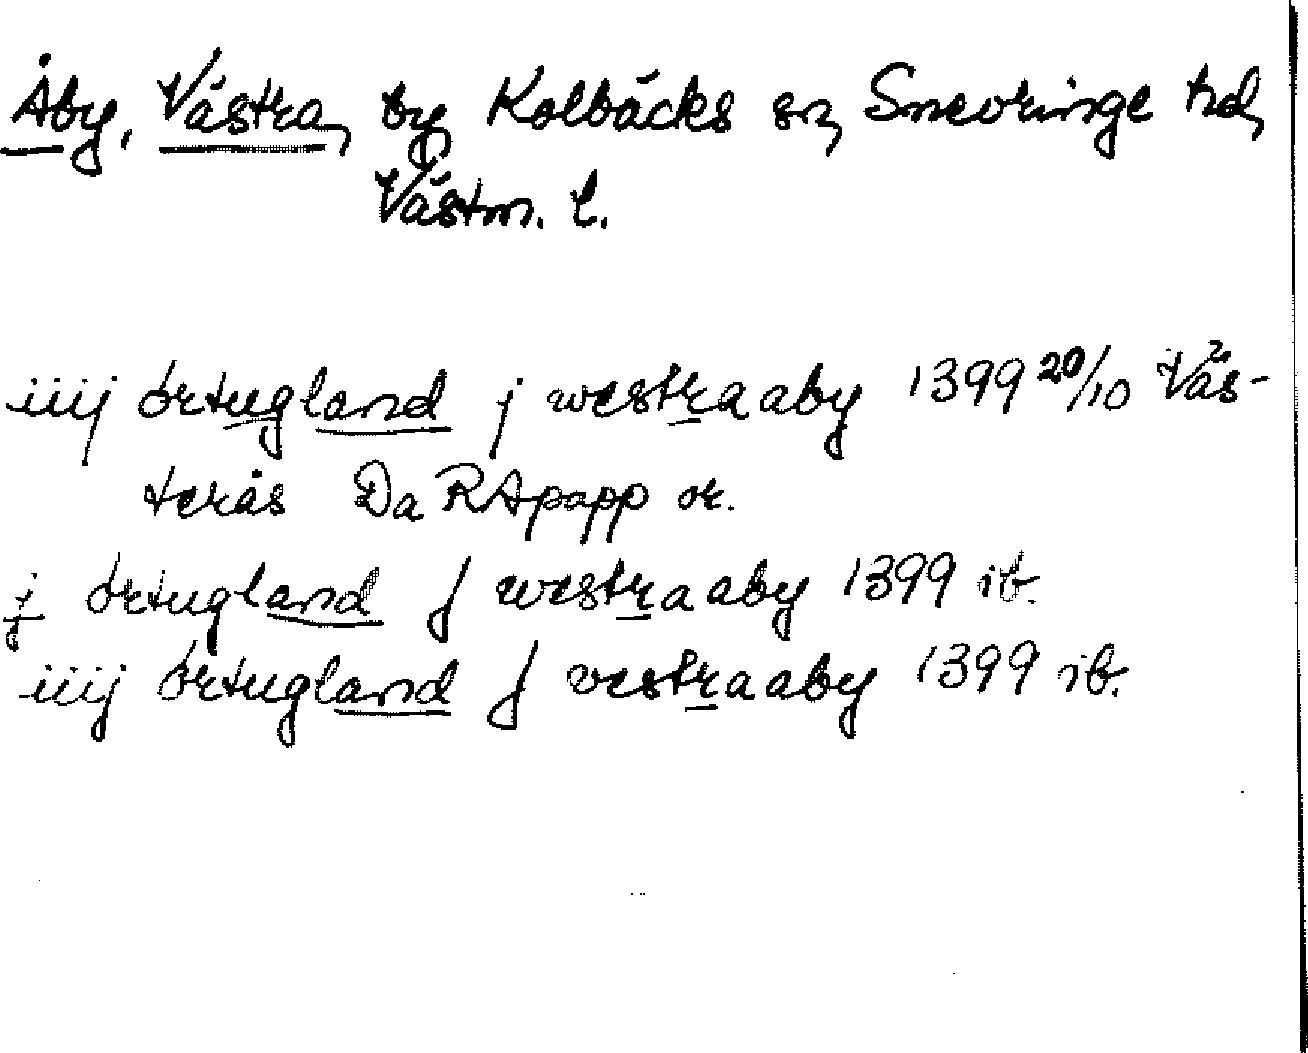 Åby, Västra, by Kolbäcks sn, Snevringe hd,
Västm. l.
iiij örtugland j westraaby 1399 20/10 Väs-
terås Da RApapp or.
j örtugland J westraaby 1399 ib.
iiij örtugland J vestraaby 1399 ib.